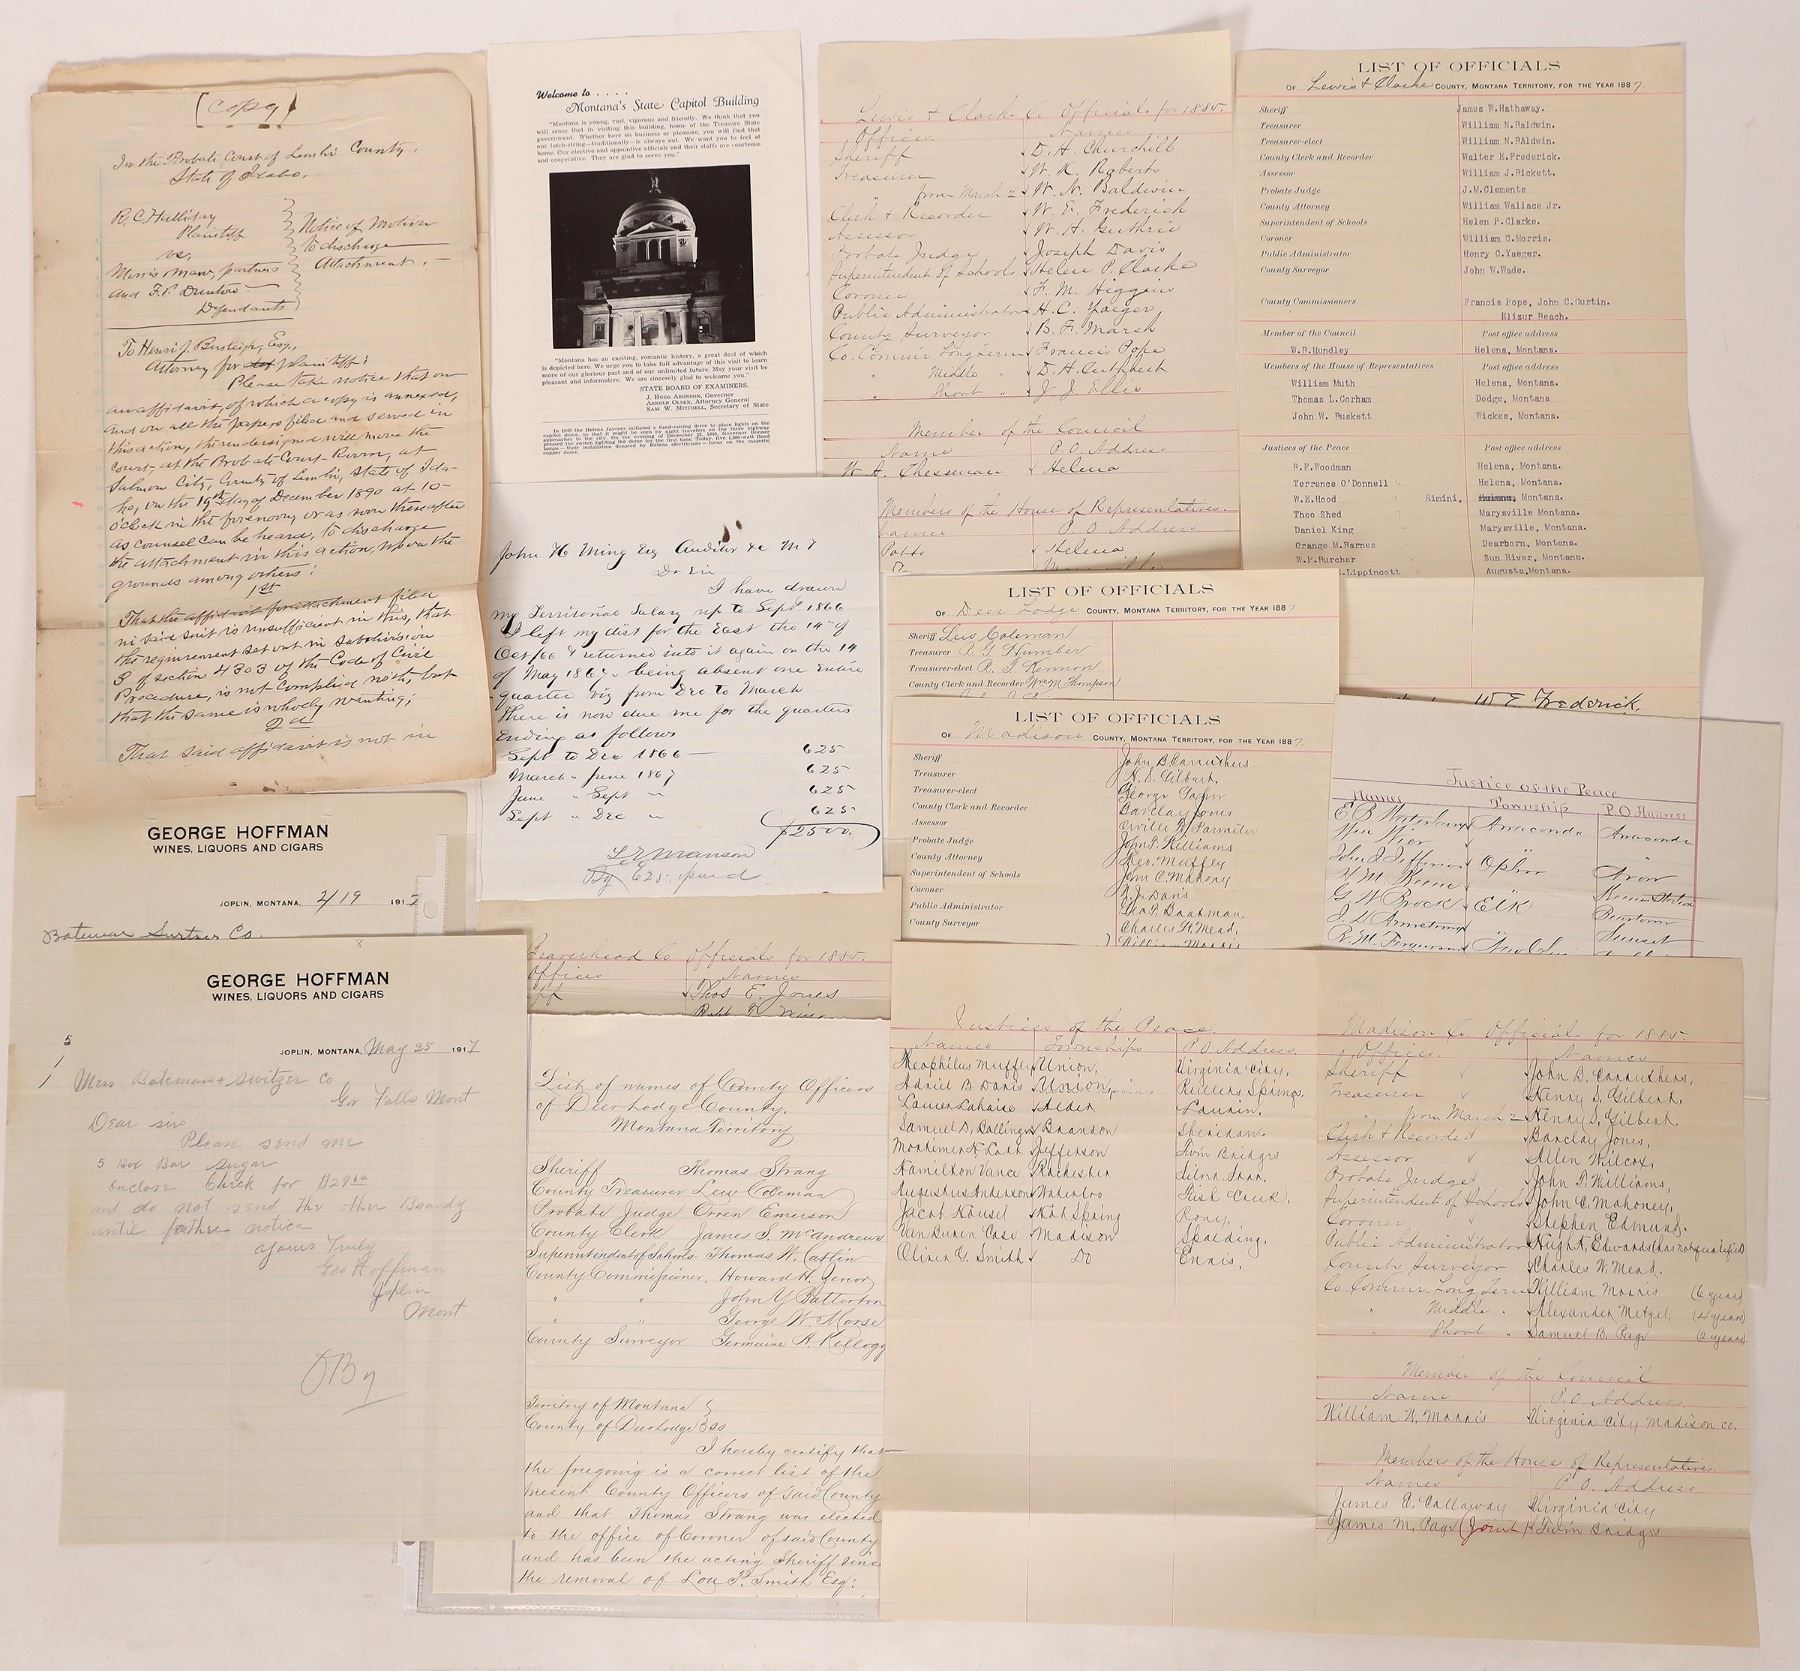 (Copy)
In the Probate Court of Lemhi County,
State of Idaho.
R.C. Halliday
Plaintiff
vs.
partners
and F.P.
Defendants
Notice of Motion
to discharge
Attachment.
To Henri J. Burleigh, Esq.,
Attorney for plaintiff:
Please take notice that on
an affidavit, of which a copy is annexed,
and on all the papers filed and served in
this action, the undersigned will move the
Court, at the Probate Court Room, at
Salmon City, County of Lemhi, State of Ida-
ho, on the 19th day of December 1890 at 10-
o'clock in the forenoon, or as soon thereafter
as counsel can be heard, to discharge
the attachment in this action, upon the
grounds among others:
1st
That the affidavit for attachment filed
in said suit is insufficient in this, that
the requirement set out in subdivision
3 of section 4303 of the Code of Civil
Procedure, is not complied with, but
that the same is wholly wanting;
2d
That said affidavit is not in
Welcome to . . . .
Montana's State Capitol Building
"Montana is young, vast, vigorous and friendly. We think that you
will sense that in visiting this building, home of the Treasure State
government. Whether here on business or pleasure, you will find that
our latch-string—traditionally—is always out. We want you to feel at
home. Our elective and appointive officials and their staffs are courteous
and cooperative. They are glad to serve you."
"Montana has an exciting, romantic history, a great deal of which
is depicted here. We urge you to take full advantage of this visit to learn
more of our glorious past and of our unlimited future. May your visit be
pleasant and informative. We are sincerely glad to welcome you."
STATE BOARD OF EXAMINERS.
J. Hugo Aronson, Governor
Arnold Olsen, Attorney General
Sam W. Mitchell, Secretary of State
In 1949 the Helena Jaycees initiated a fund-raising drive to place lights on the
capitol dome, so that it might be seen by night travelers on the three highway
approaches to the city. On the evening of December 22, 1949, Governor Bonner
pressed the switch lighting the dome for the first time. Today, five 1,500-watt flood
lamps—their installation donated by Helena electricians—focus on the majestic
copper dome.
Lewis & Clarke Co Officials for 1885.
Offices. Names
Sheriff D. H. Churchill
Treasurer W. K. Roberts
" from March = W. N. Baldwin
Clerk & Recorder W. E. Frederick
Assessor W. H. Guthrie
Probate Judge Joseph Davis
Superintendent of Schools Helen P. Clarke
Coroner F. M. Higgins
Public Administrator H. C. Yaeger
County Surveyor B. F. Marsh
Co. Commir Long Term Francis Pope
" Middle " D. H. Cuthbert
" Short " J. J. Ellis
Member of the Council
Name P. O. Address
W. A. Chessman Helena
Members of the House of Representatives.
Names P. O. Address
Potts Helena
LIST OF OFFICIALS
OF Lewis & Clarke COUNTY, MONTANA TERRITORY, FOR THE YEAR 1887.
Sheriff James W. Hathaway.
Treasurer William N. Baldwin.
Treasurer-elect William N. BAldwin.
County Clerk and Recorder Walter E. Frederick.
Assessor William J. Rickett.
Probate Judge J.M. Clements
County Attorney William Wallace Jr.
Superintendent of Schools Helen P. Clarke.
Coroner William C. Morris.
Public Administrator Henry C. Yaeger.
County Surveyor John W. Wade.
County Commissioners Francis Pope, John C. Curtin.
Elizur Beach.
Member of the Council Post office address
W. B. Hundley Helena, Montana.
Members of the House of Representatives Post office address
William Muth Helena, Montana.
Thomas L. Gorham Dodge, Montana
John W. Buskett Wickes, Montana.
Justices of the Peace Post office address
R.F. Woodman Helena, Montana.
Terrence O'Donnell Helena, Montana.
W.E. Hood Rimini, Montana.
Theo Shed Marysville Montana.
Daniel King Marysville, Montana.
Orange M. Barnes Dearborn, Montana.
W.P. Burcher Sun River, Montana.
Lippincott Augusta, Montana.
W E Frederick.
John H Ming Esq Auditor &c M T
Dr Sir
I have drawn
my Territorial Salary up to Sept 1866
I left my dist for the East the 14th of
Oct/66 & returned into it again on the 14
of May 1867 being absent one entire
quarter viz from Dec to March
There is now due me for the quarters
Ending as follows
Sept to Dec 1866 — 625
March " June 1867 625
June " Sept " 625
Sept " Dec " 625
$2500.
By 625. paid
LIST OF OFFICIALS
OF Deer Lodge COUNTY, MONTANA TERRITORY, FOR THE YEAR 1887
Sheriff Lew Coleman
Treasurer A. G. Humber
Treasurer-elect R. T. Kennon
County Clerk and Recorder Wm M Thompson
LIST OF OFFICIALS
OF Madison COUNTY, MONTANA TERRITORY, FOR THE YEAR 1887.
Sheriff John B. Carruthers
Treasurer H. S. Gilbert,
Treasurer-elect George Pahn
County Clerk and Recorder Barclay Jones
Assessor Orville B. Parmeter
Probate Judge John P. Williams
County Attorney Geo. Muffey
Superintendent of Schools Jno C. Mahony
Coroner R. J. Davis
Public Administrator Chas P. Boatman,
County Surveyor Charles W. Mead,
William Morris
Justice of the Peace
Names Township P.O. Address
E B Waterbury Anaconda Anaconda
Wm Wier " "
John J Jefferies Ophir Avon
G W Brock Elk Bearmouth
J. D. Armstrong " Sunset
R. M. Ferguson
GEORGE HOFFMAN
WINES, LIQUORS AND CIGARS
JOPLIN, MONTANA, 2/19 1917
Co.
8
GEORGE HOFFMAN
WINES, LIQUORS AND CIGARS
JOPLIN, MONTANA, May 25 1917
5
1
1
Mess Bateman & Switzer Co
Gr Falls Mont
Dear sirs
Please send me
5 Box Bar Sugar
enclose Check for $29 64
and do not send the other Brandy
until father notice
Yours Truly
Geo Hoffman
Joplin
Mont
Beaverhead Co Officials for 1885.
Offices Names
ff Thos E. Jones
List of names of County Officers
of Deer Lodge County,
Montana Territory
Sheriff Thomas Strang
County Treasurer Lew Coleman
Probate Judge Orren Emerson
County Clerk James S. McAndrews
Superintendent of Schools Thomas W. Catlin
County Commissioner, Howard H. Zenor
" " John Y Batterton
" " George W. Morse
County Surveyor Germaine A. Kellogg
Territory of Montana
County of Deer Lodge ss
I hereby certify that
the foregoing is a correct list of the
present County Officers of said County
and that Thomas Strang was elected
to the office of Coroner of said County
and has been the acting Sheriff since
the removal of Lou P. Smith Esq:
Justices of the Peace.
Names Townships P.O. Address.
Theophilus Muffly Union, Virginia City,
Adriel B Davis Union, Pullers Springs.
Laurier Lahaise Alder Laurin.
Samuel D. Bollinger Branson Sheridan
Mortimer H. Lott Jefferson Twin Bridges
Hamilton Vance Rochester Silver Star.
Augustus Anderson Waterloo Fish Creek.
Jacob Housel Hot Spring Rony.
Van Buren Case Madison Spalding.
Oliver G. Smith Do Ennis.
Madison Co Officials for 1885.
Offices. Names
Sheriff John B. Carruthers,
Treasurer Henry S. Gilbert,
" from March = Henry S. Gilbert.
Clerk & Recorder Barclay Jones,
Assessor Allen Wilcox,
Probate Judge John P. Williams,
Superintendent of Schools John C. Mahoney,
Coroner Stephen Edmund.
Public Administrator Hught, Edwards (has not qualified)
County Surveyor Charles W. Mead.
Co Commir Long Term William Morris (6 years)
" Middle " Alexander Metzel, (4 years)
" Short " Samuel B. Page (2 years)
Member of the Council
Name P.O. Address
William W. Morris Virginia City Madison Co.
Members of the House of Representatives.
Names P. O. Address
James E. Callaway Virginia City
James M. Page (Joint) Twin Bridges